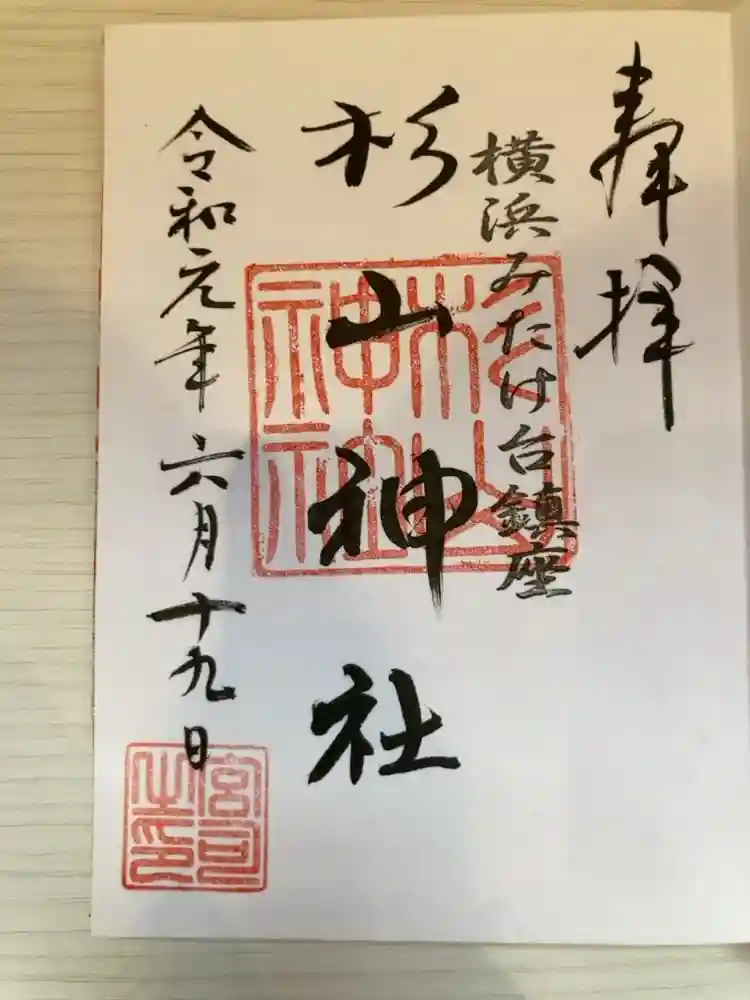 奉拝
横浜みたけ台鎮座
杉山神社
杉山神社
令和元年六月十九日
宮司之印